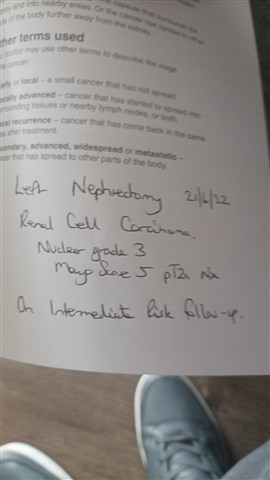 the capsule that surrounds the
and into nearby areas. Or the cancer has spread to other
of the body further away from the kidney.
ther terms used
doctor may use other terms to describe the stage
cancer:
early or local – a small cancer that has not spread.
locally advanced – cancer that has started to spread into
surrounding tissues or nearby lymph nodes, or both.
local recurrence – cancer that has come back in the same
after treatment.
secondary, advanced, widespread or metastatic –
cancer that has spread to other parts of the body.
Left Nephrectomy 21/6/22
Renal Cell Carcinoma.
Nuclear grade 3
Mayo Score 5 pT2a Nx
On Intermediate Risk follow-up.